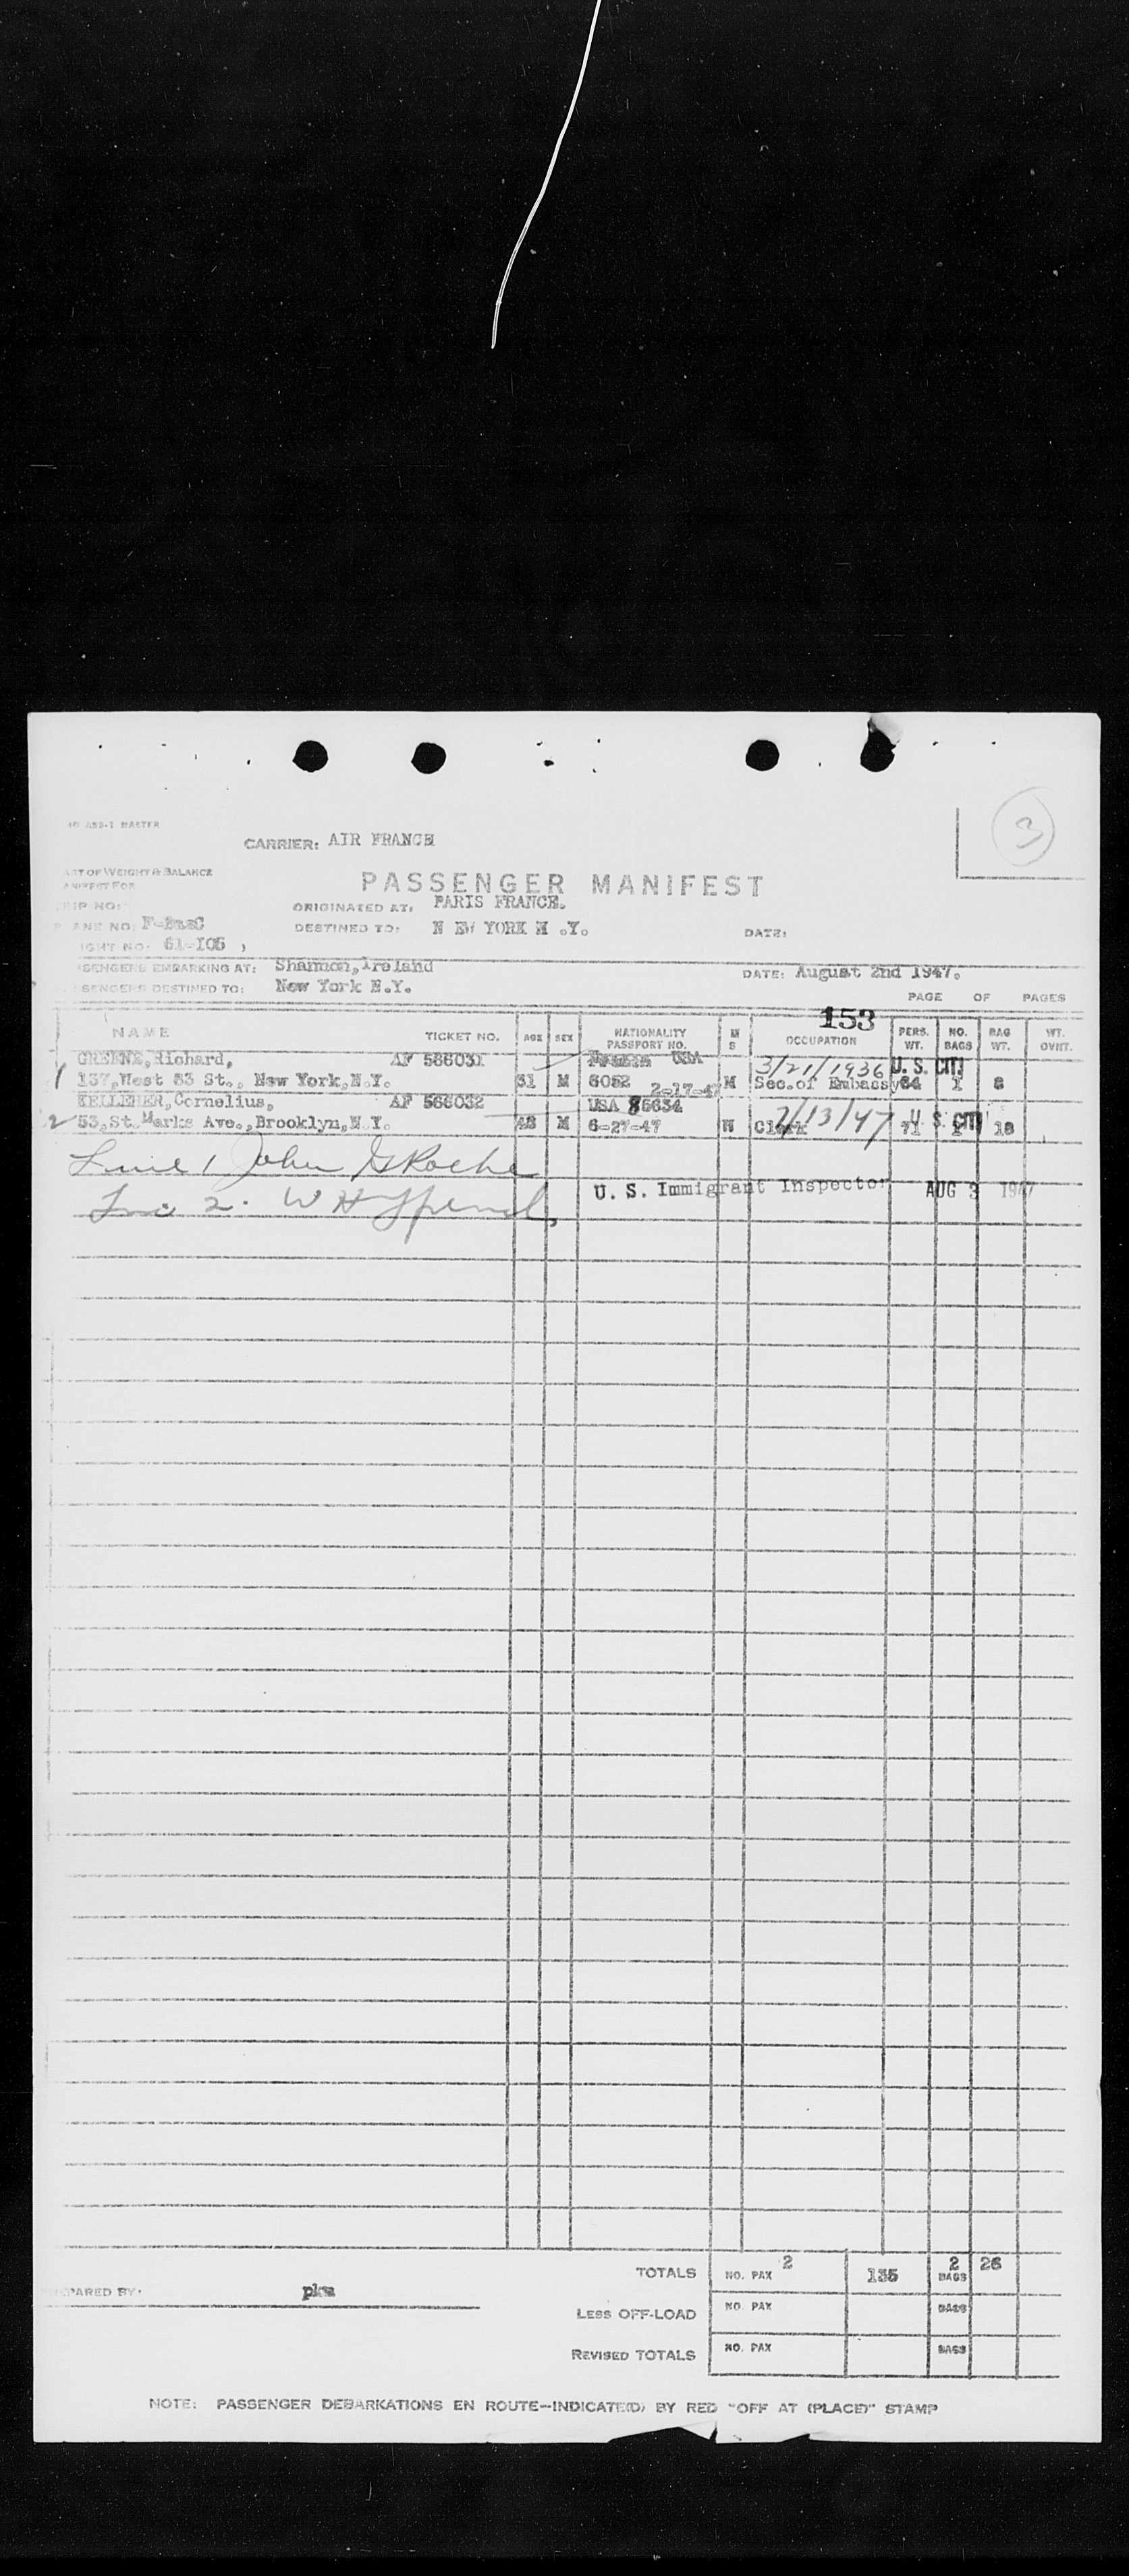 3
CARRIER: AIR FRANCE
OF WEIGHT & BALANCE
PASSENGER MANIFEST
ORIGINATED AT: PARIS FRANCE.
DESTINED TO: N EW YORK N .Y. DATE:
61-I05
EMBARKING AT: Shannon, Ireland DATE: August 2nd 1947.
DESTINED TO: New York N.Y.
PAGE OF PAGES
153
NAME TICKET NO. AGE SEX NATIONALITY PASSPORT NO. M S OCCUPATION PERS. WT. NO. BAGS BAG WT. WT. OVHT.
GREENE, Richard, AF 566031 USA 3/21/1936 U. S. CIT.
1 137, West 83 St., New York, N.Y. 31 M 6052 2-17-47 M Sec. of Embassy 64 1 8
KELLEHER, Cornelius, AF 566032 USA 85634 7/13/47 U. S. CIT
2 53, St. Marks Ave., Brooklyn, N.Y. 48 M 6-27-47 W Clerk 71 1 18
Line 1 John G Roche
U. S. Immigrant Inspector AUG 3 1947
Line 2. W H
TOTALS NO. PAX 2 135 2 BAGS 26
PARED BY:
LESS OFF-LOAD NO. PAX BAGS
REVISED TOTALS NO. PAX BAGS
NOTE: PASSENGER DEBARKATIONS EN ROUTE--INDICATE(D) BY RED "OFF AT (PLACE)" STAMP